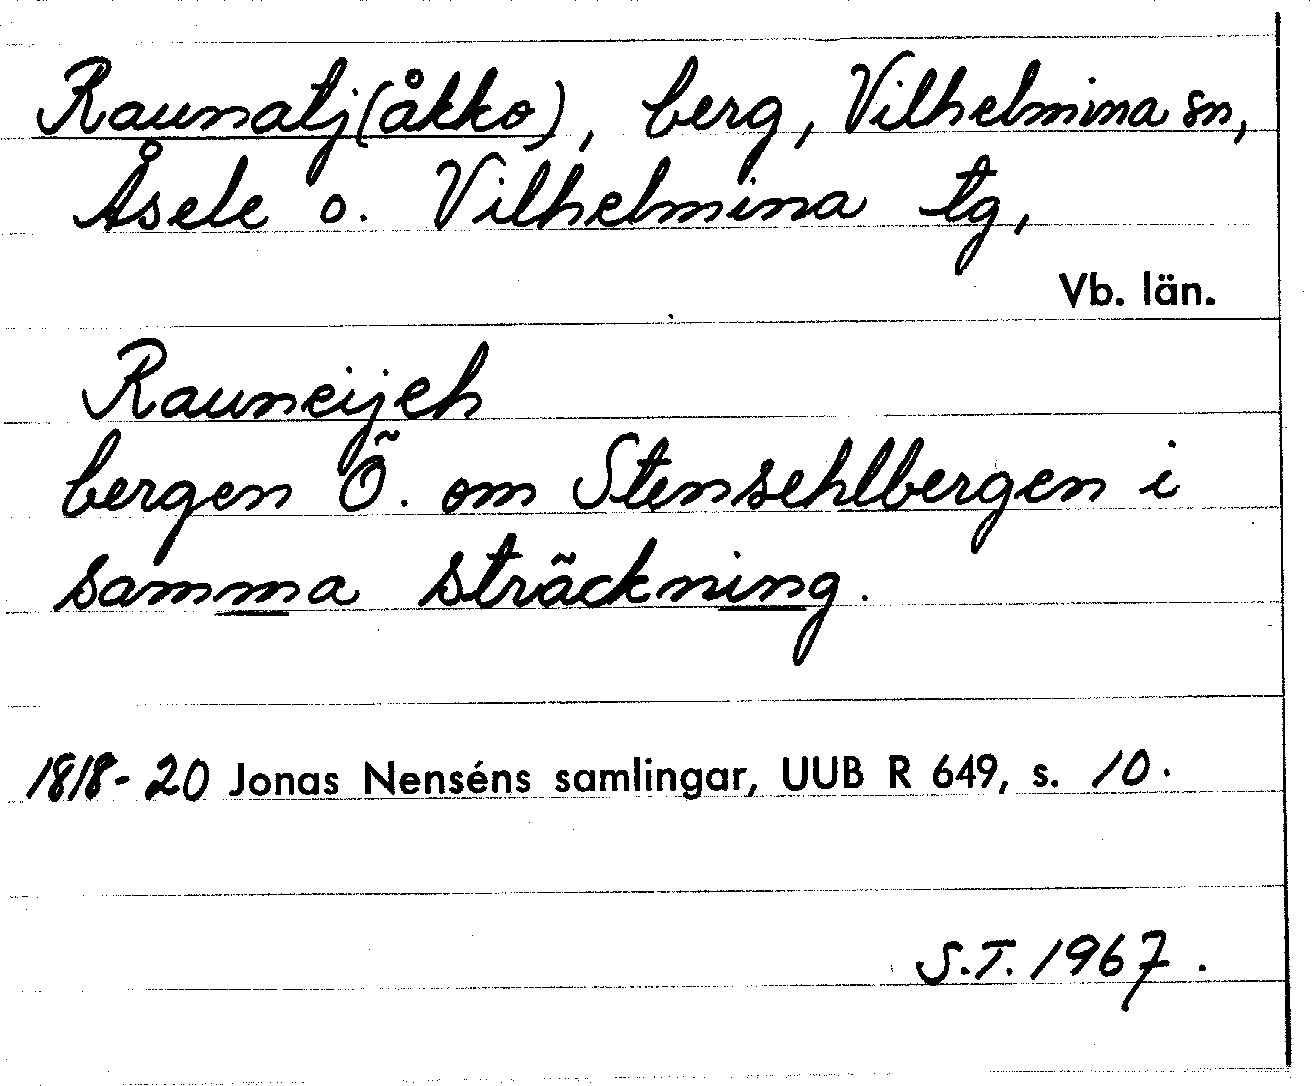 Raunatj(åkko), berg, Vilhelmina sn,
Åsele o. Vilhelmina tg,
Vb. län.
Rauneijeh
bergen Õ. om Stensehlbergen i
samma sträckning.
1818-20 Jonas Nenséns samlingar, UUB R 649, s. 10.
S.T. 1967.